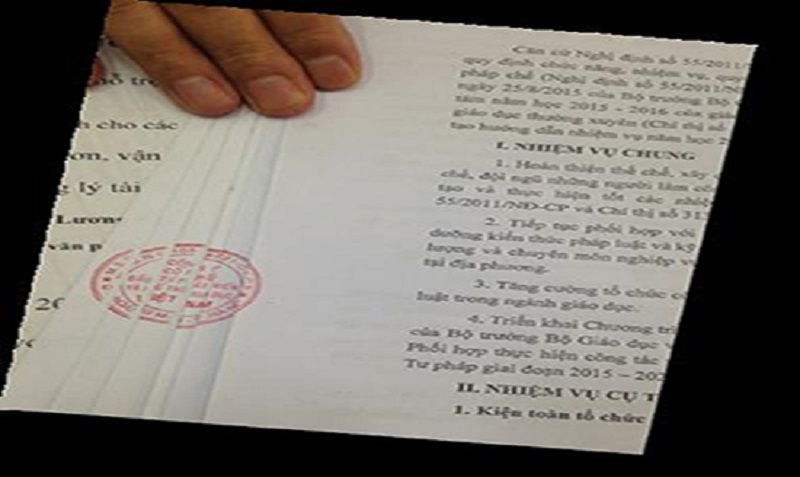 hỗ trợ
n cho các
ơn, vận
g lý tài
Lương
văn p
20
VIỆT NAM
Căn cứ Nghị định số 55/2011/
quy định chức năng, nhiệm vụ, quy
pháp chế (Nghị định số 55/2011/N
ngày 25/8/2015 của Bộ trưởng Bộ
tâm năm học 2015 - 2016 của giá
giáo dục thường xuyên (Chỉ thị số
tạo hướng dẫn nhiệm vụ năm học 2
I. NHIỆM VỤ CHUNG
1. Hoàn thiện thể chế, xây
chế, đội ngũ những người làm cô
tạo và thực hiện tốt các nhiệ
55/2011/NĐ-CP và Chỉ thị số 313
2. Tiếp tục phối hợp với
dưỡng kiến thức pháp luật và kỹ
lượng và chuyên môn nghiệp v
tại địa phương.
3. Tăng cường tổ chức c
luật trong ngành giáo dục.
4. Triển khai Chương trì
của Bộ trưởng Bộ Giáo dục
Phối hợp thực hiện công tác
Tư pháp giai đoạn 2015 – 202
II. NHIỆM VỤ CỤ T
1. Kiện toàn tổ chức